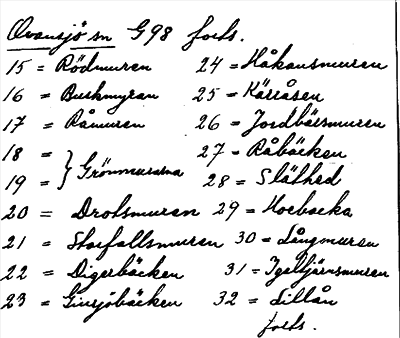 Ovansjö sn G98 forts.
15 = Rödmuren 24 = Håkansmuren
16 = Buskmyran 25 = Kärråsen
17 = Råmuren 26 = Jordbärsmuren
18 = 27 = Råbäcken
19 = } Grönmurarna 28 = Släthed
20 = Drotsmuren 29 = Hoebacka
21 = Storfallsmuren 30 = Långmuren
22 = Digerbäcken 31 = Igeltjärnsmuren
23 = Ginsjöbäcken 32 = Lillån
forts.